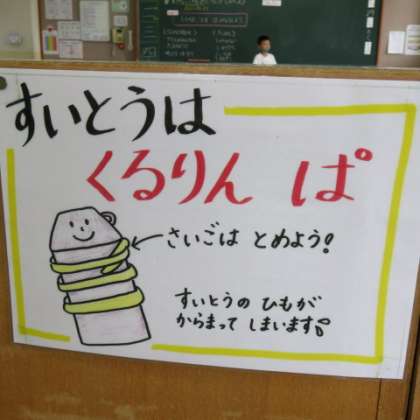 すいとうは
くるりん ぱ
さいごは とめよう!
すいとうの ひもが
からまって しまいます。